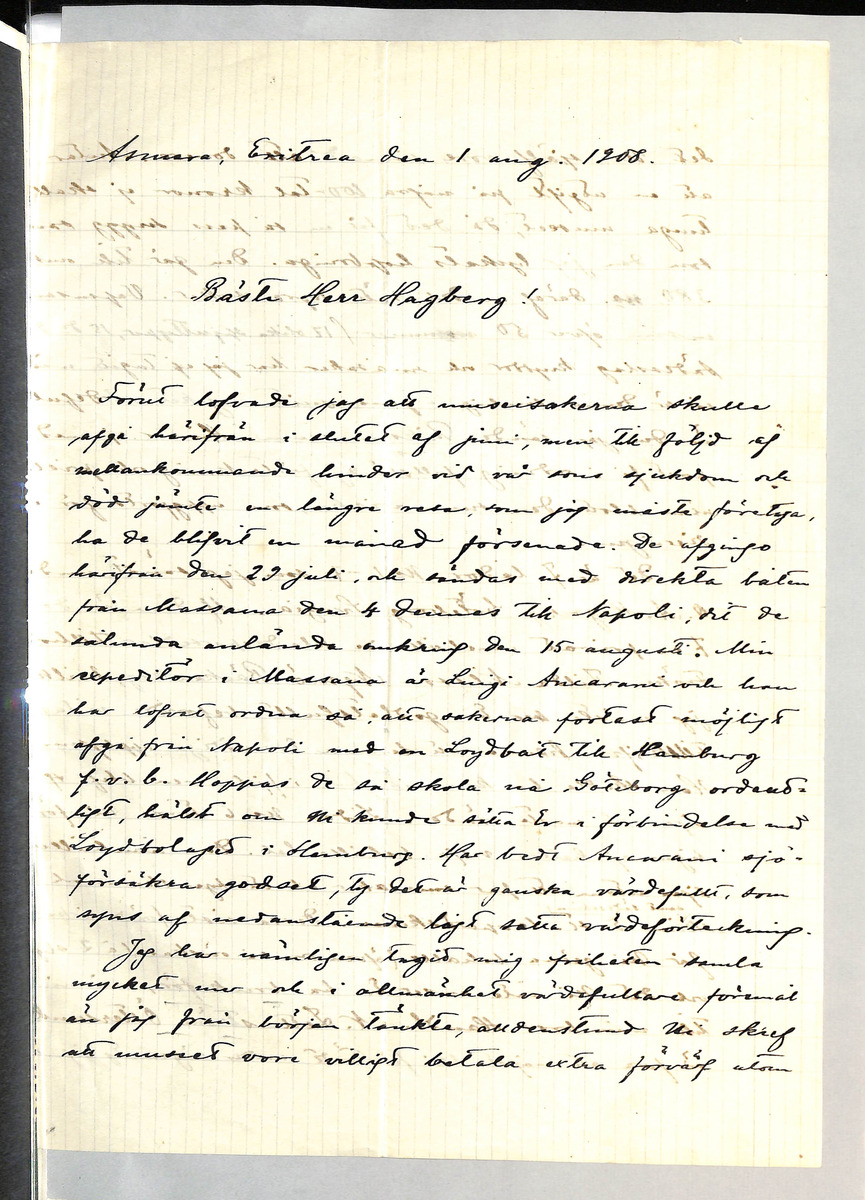 Asmara, Eritrea den 1 aug. 1908.
Bäste Herr Hagberg!
Förut lofvade jag att museisakerna skulle
afgå härifrån i slutet af juni, men till följd af
mellankommande hinder vid vår sons sjukdom och
död jämte en längre resa, som jag måste företaga,
ha de blifvit en månad försenade. De afgingo
härifrån den 29 juli, och sändas med direkta båten
från Massaua den 4 dennes till Napoli, dit de
sålunda anlända omkring den 15 augusti. Min
expeditör i Massaua är Luigi Ancarani och han
har lofvat ordna så, att sakerna fortast möjligt
afgå från Napoli med en Loydbåt till Hamburg
f.v.b. Hoppas de så skola nå Göteborg ordent-
ligt, hälst om Ni kunde sätta Er i förbindelse med
Loydbolaget i Hamburg. Har bedt Ancarani sjö-
försäkra godset, ty det är ganska värdefullt, som
syns af nedanstående lågt satta värdeförteckning.
Jag har nämligen tagit mig friheten samla
mycket mer och i allmänhet värdefullare föremål
än jag från början tänkte, alldenstund Ni skref
att museet vore villigt betala extra förvärf utom